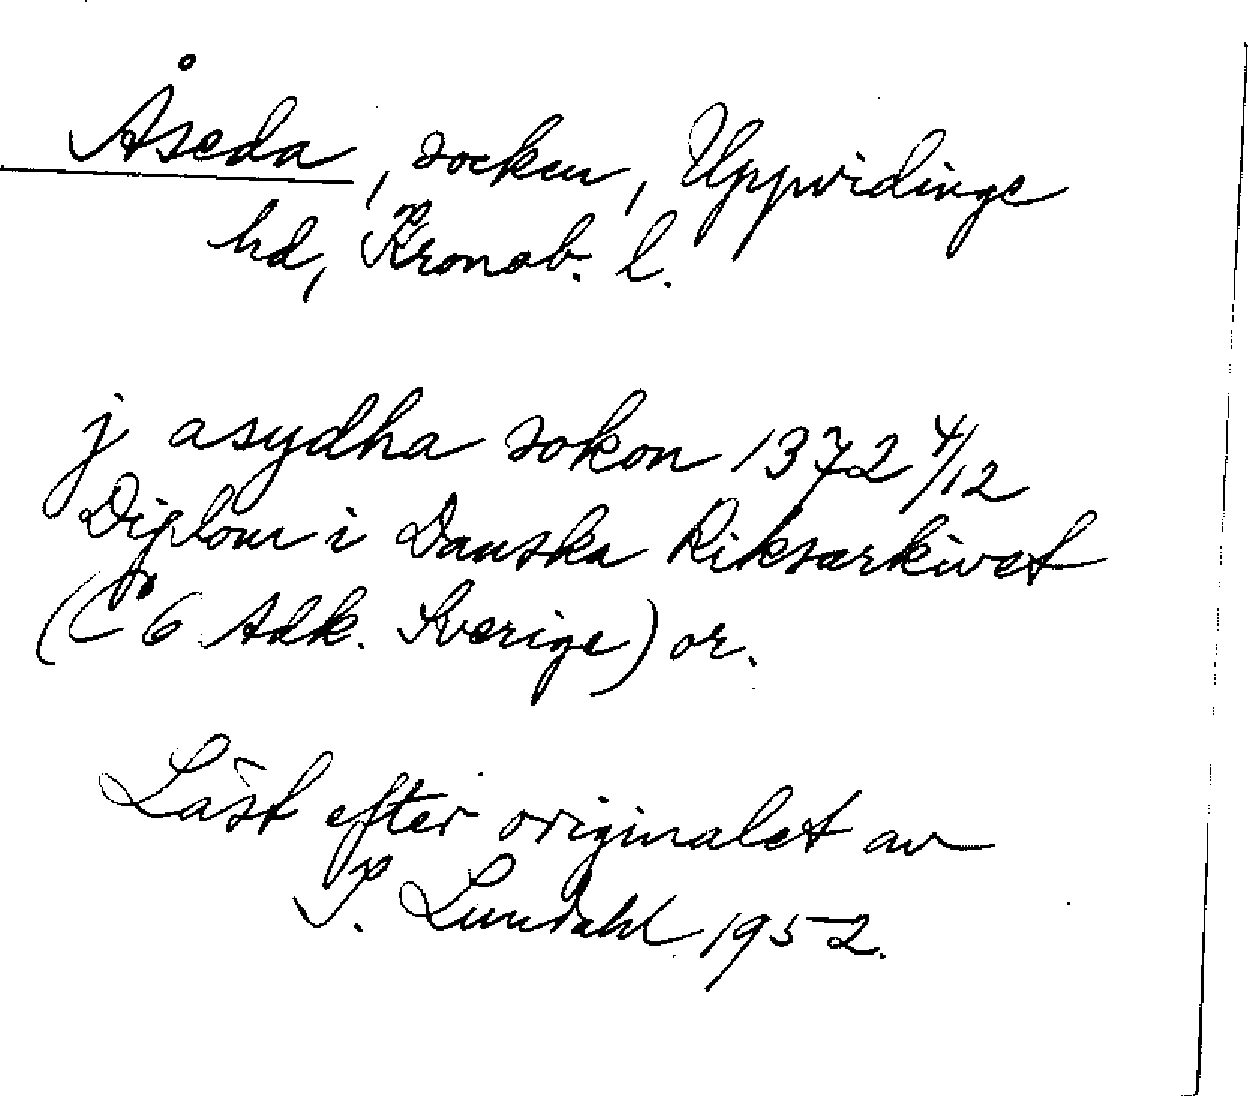 Åseda, socken, Uppvidinge
hd, Kronob. l.
j asydha sokon 1372 4/12
Diplom i Danska Riksarkivet
(C 6 Adk. Sverige) or.
Läst efter originalet av
I. Lundahl 1952.